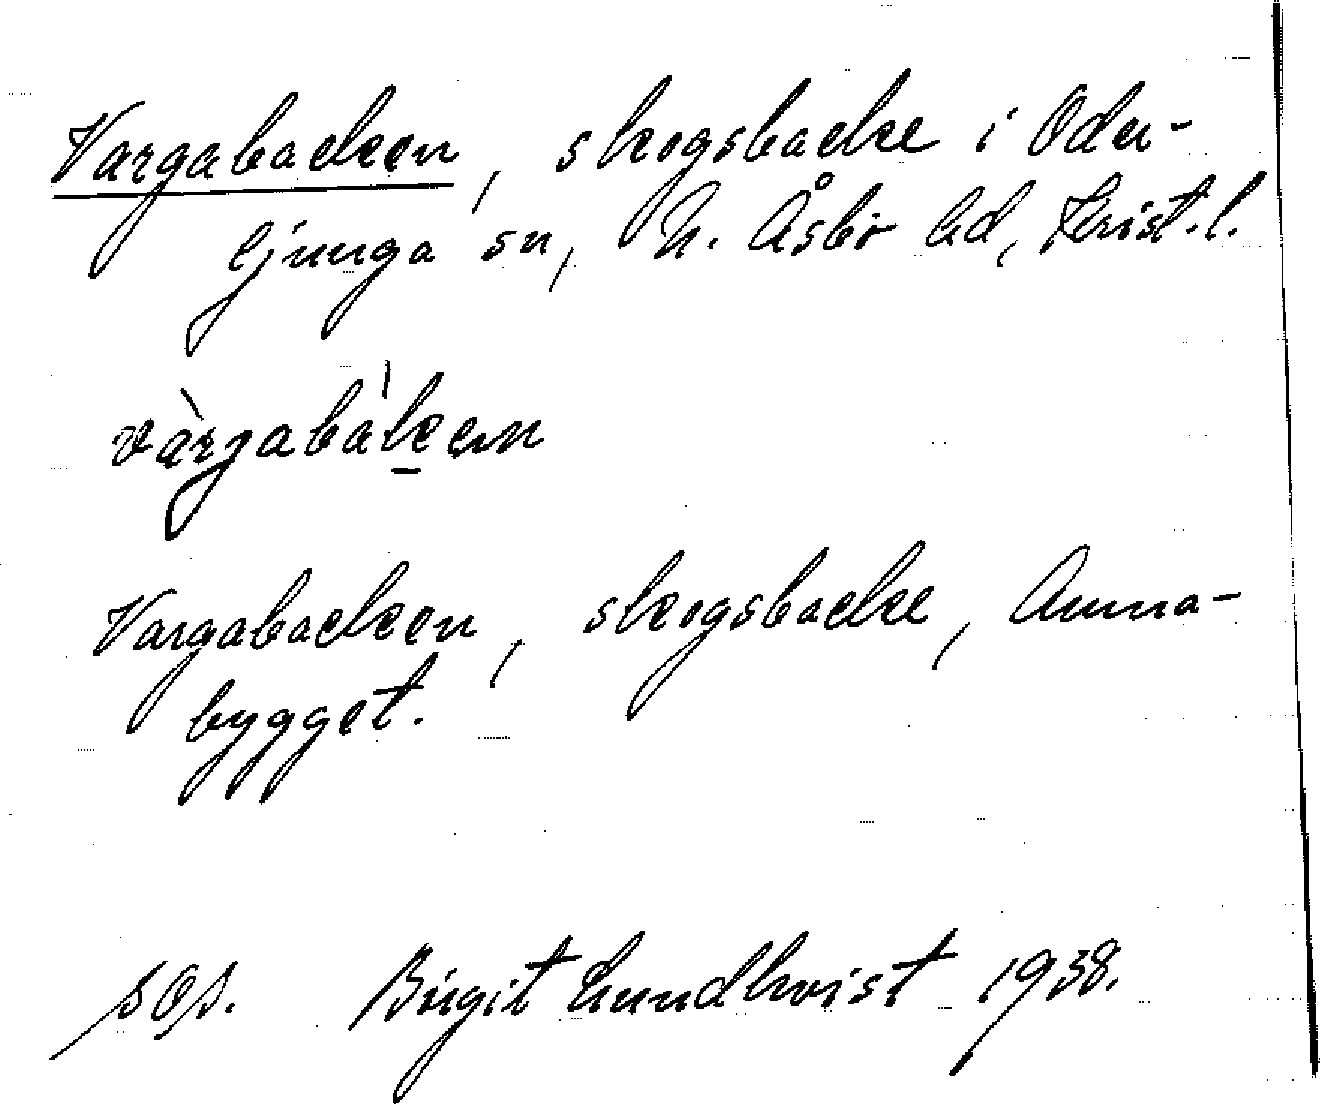 Vargabacken, skogsbacke i Oder-
ljunga sn, N. Åsbo hd, Krist. l.
vàrgabàken
Vargabacken, skogsbacke, Anna-
bygget.
Birgit Lundkvist 1938.